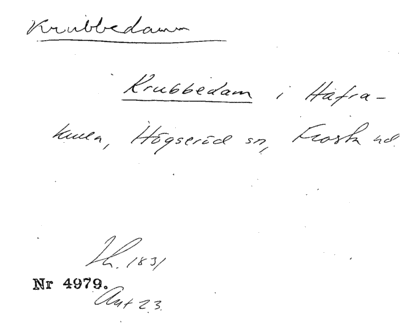 Krubbedamm
Krubbedam i Hafra-
kulla, Högseröd sn, Frosta hd
Lh. 1831
Nr 4979.
Ant 23.